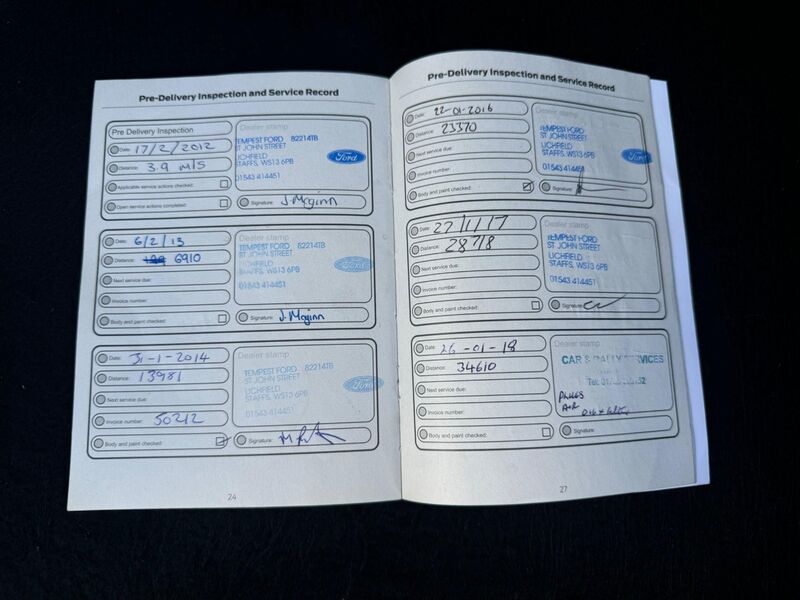 Pre-Delivery Inspection and Service Record
Pre Delivery Inspection
Date: 17/2/2012
Distance: 3.9 MLS
Applicable service actions checked:
Open service actions completed:
Dealer stamp
TEMPEST FORD 82214TB
ST JOHN STREET
LICHFIELD
STAFFS, WS13 6PB
01543 414451
Ford
Signature: J. Mcginn
Date: 6/2/13
Distance: 6910
Next service due:
Invoice number:
Body and paint checked:
Dealer stamp
TEMPEST FORD 82214TB
ST JOHN STREET
LICHFIELD
STAFFS, WS13 6PB
01543 414451
Ford
Signature: J. Mcginn
Date: 31-1-2014
Distance: 13981
Next service due:
Invoice number: 50212
Body and paint checked:
Dealer stamp
TEMPEST FORD 82214TB
ST JOHN STREET
LICHFIELD
STAFFS, WS13 6PB
01543 414451
Ford
Signature:
24
Pre-Delivery Inspection and Service Record
Date: 22-01-2016
Distance: 23370
Next service due:
Invoice number:
Body and paint checked:
Dealer stamp
TEMPEST FORD
ST JOHN STREET
LICHFIELD
STAFFS, WS13 6PB
01543 414451
Ford
Signature:
Date: 27/1/17
Distance: 28718
Next service due:
Invoice number:
Body and paint checked:
Dealer stamp
TEMPEST FORD
ST JOHN STREET
LICHFIELD
STAFFS, WS13 6PB
01543 414451
Signature:
Date: 26-01-18
Distance: 34610
Next service due:
Invoice number:
Body and paint checked:
Dealer stamp
CAR & RALLY SERVICES
Tel:
PLUGS
AIR
Signature:
27